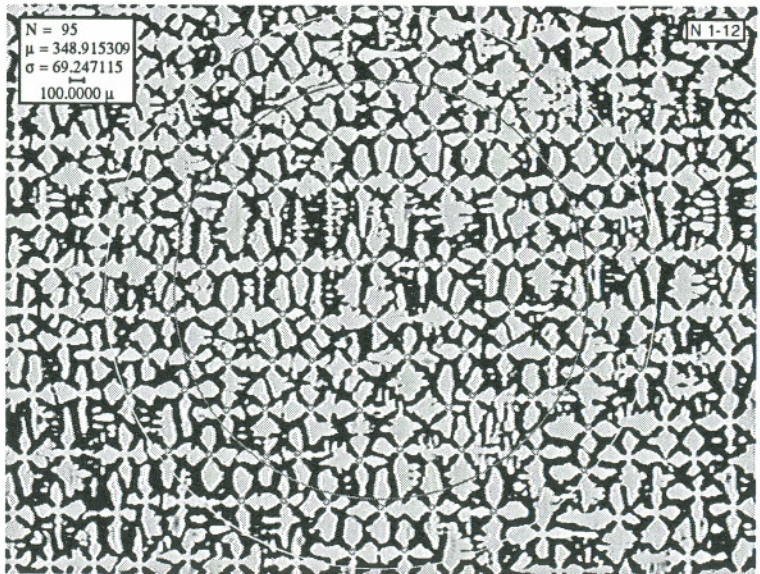 N = 95
μ = 348.915309
σ = 69.247115
100.0000 μ
N 1-12